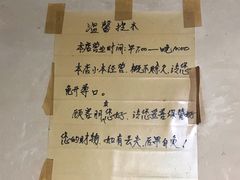 温馨提示
本店营业时间：早7:00——晚10:00
本店小本经营，概不赊欠，请您
免开尊口。
顾客朋友您好，请您妥善保管好
您的财物，如有丢失，后果自负！